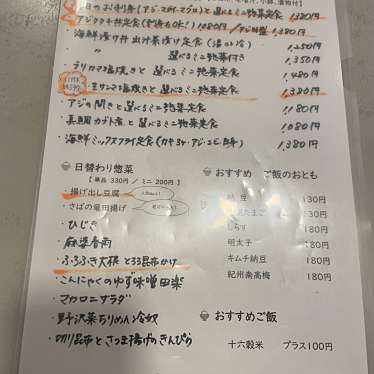 日のお刺身(アジ・スズキ・マグロ)と選べるミニ惣菜定食 1,380円
海鮮漬け丼 出汁茶漬け定食(温or冷) 1,250円
〃 選べるミニ惣菜付き 1,350円
選べるミニ惣菜定食 1,480円
サンマ塩焼きと選べるミニ惣菜定食 1,380円
アジの開きと選べるミニ惣菜定食 1,180円
真鯛カブト煮と選べるミニ惣菜定食 1,080円
海鮮ミックスフライ定食 1,380円
日替わり惣菜
【単品 330円 / ミニ 200円】
・揚げ出し豆腐
・さばの竜田揚げ
・ひじき
・麻婆春雨
・ふろふき大根 とろろ昆布かけ
・こんにゃくのゆず味噌田楽
・マカロニサラダ
・野沢菜ちりめん冷奴
・切り昆布とさつま揚げのきんぴら
おすすめ ご飯のおとも
納豆 130円
たまご 130円
しらす 180円
明太子 180円
キムチ納豆 180円
紀州南高梅 180円
おすすめご飯
十六穀米 プラス100円